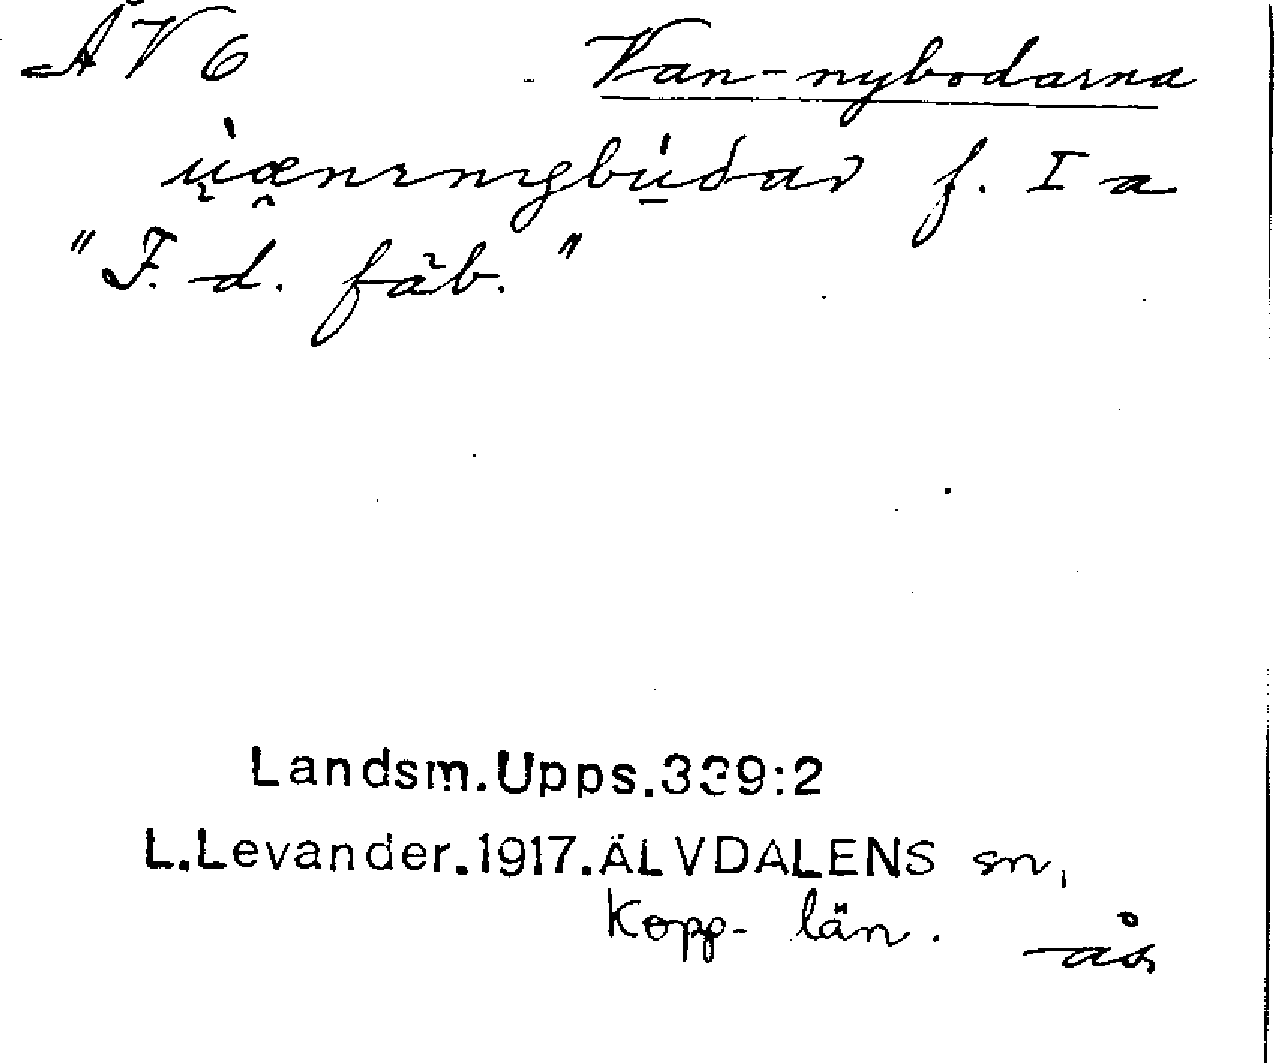 ÅV6 Van-nybodarna
f. I a
"F. d. fäb."
Landsm.Upps.339:2
L.Levander.1917.ÄLVDALENS sn,
Kopp- län.